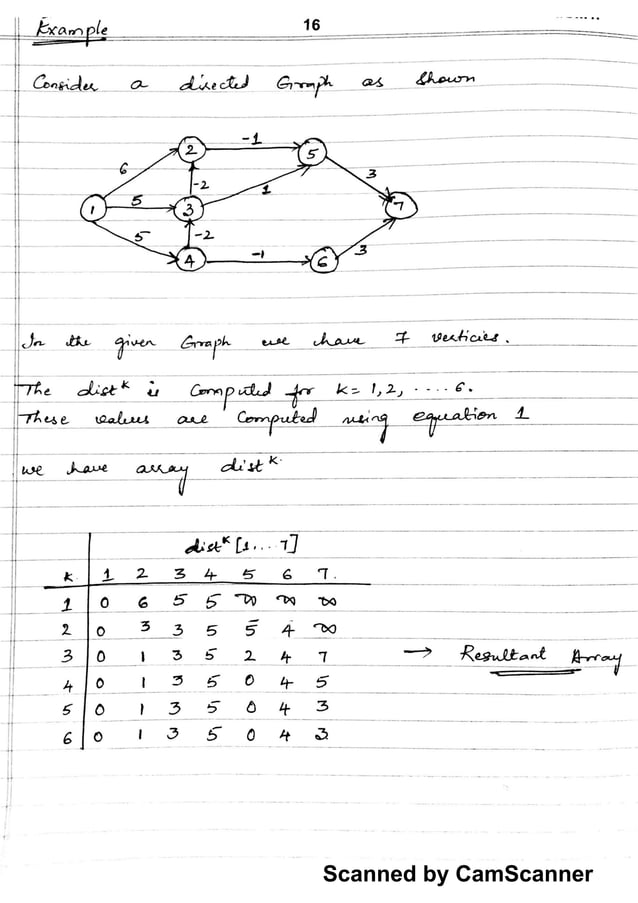 Example
16
Consider a directed Graph as shown
6
-1
5
-2
1
3
5
-2
-1
3
1
2
3
4
5
6
7
In the given Graph we have 7 verticies.
The dist^k is Computed for k= 1,2, .... 6.
These values are Computed using equation 1
we have array dist^k.
dist^k [1....7]
k 1 2 3 4 5 6 7.
1 0 6 5 5 ∞ ∞ ∞
2 0 3 3 5 5 4 ∞
3 0 1 3 5 2 4 7 → Resultant Array
4 0 1 3 5 0 4 5
5 0 1 3 5 0 4 3
6 0 1 3 5 0 4 3
Scanned by CamScanner